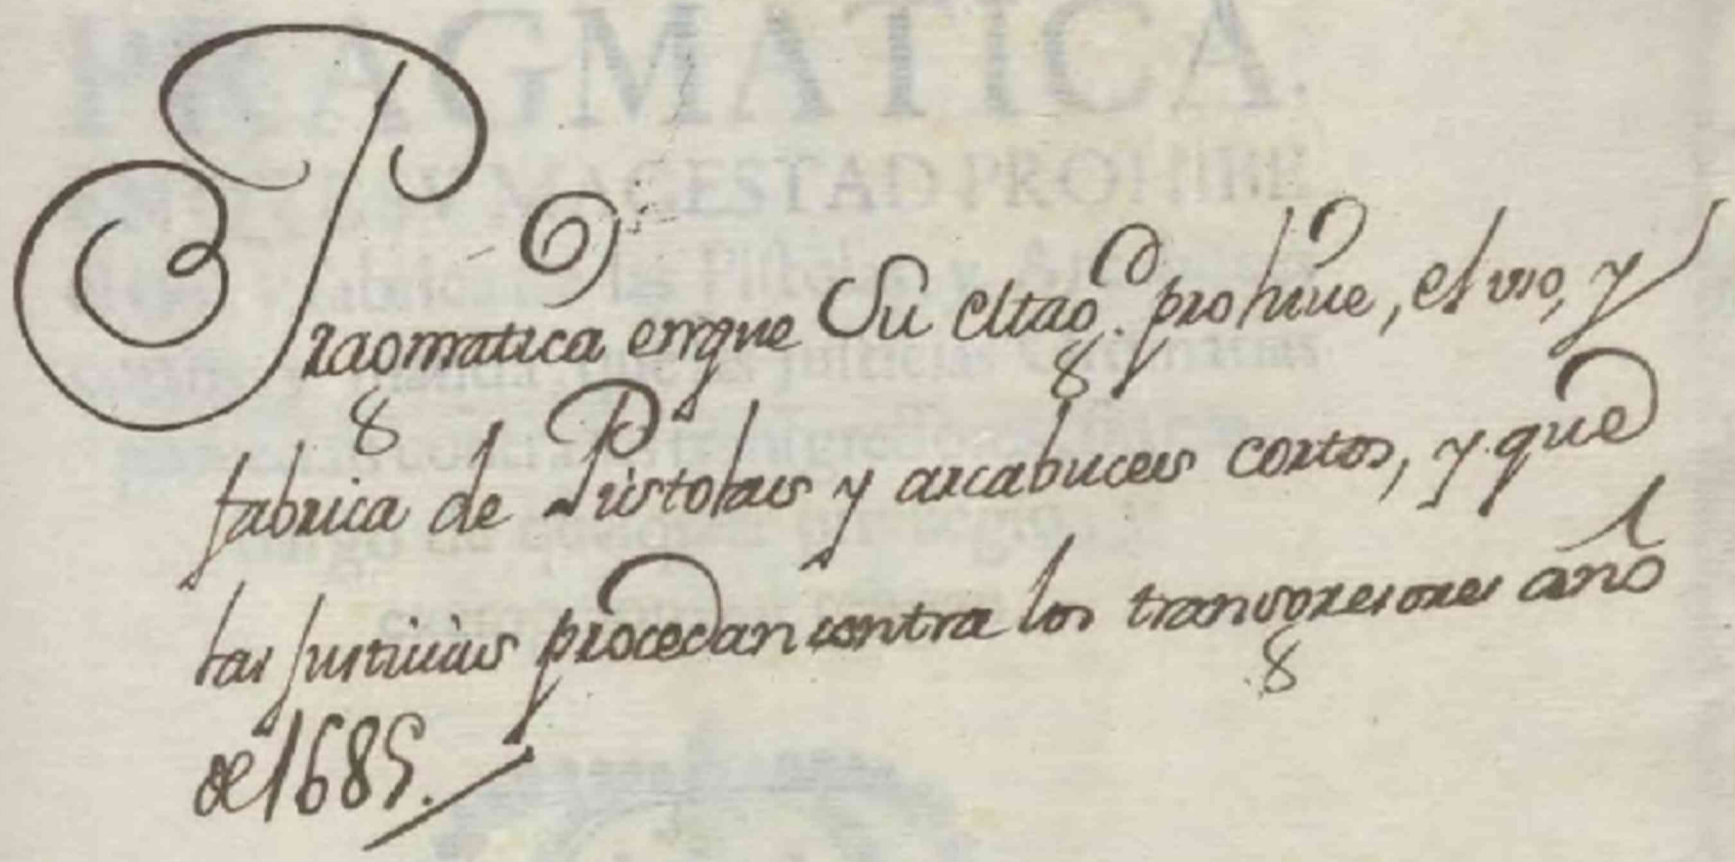 Pragmatica enque Su Mag.d prohiue, el vso, y
fabrica de Pistolas y arcabuces cortos, y que
las Justicias procedan contra los transgresores año
de 1685.